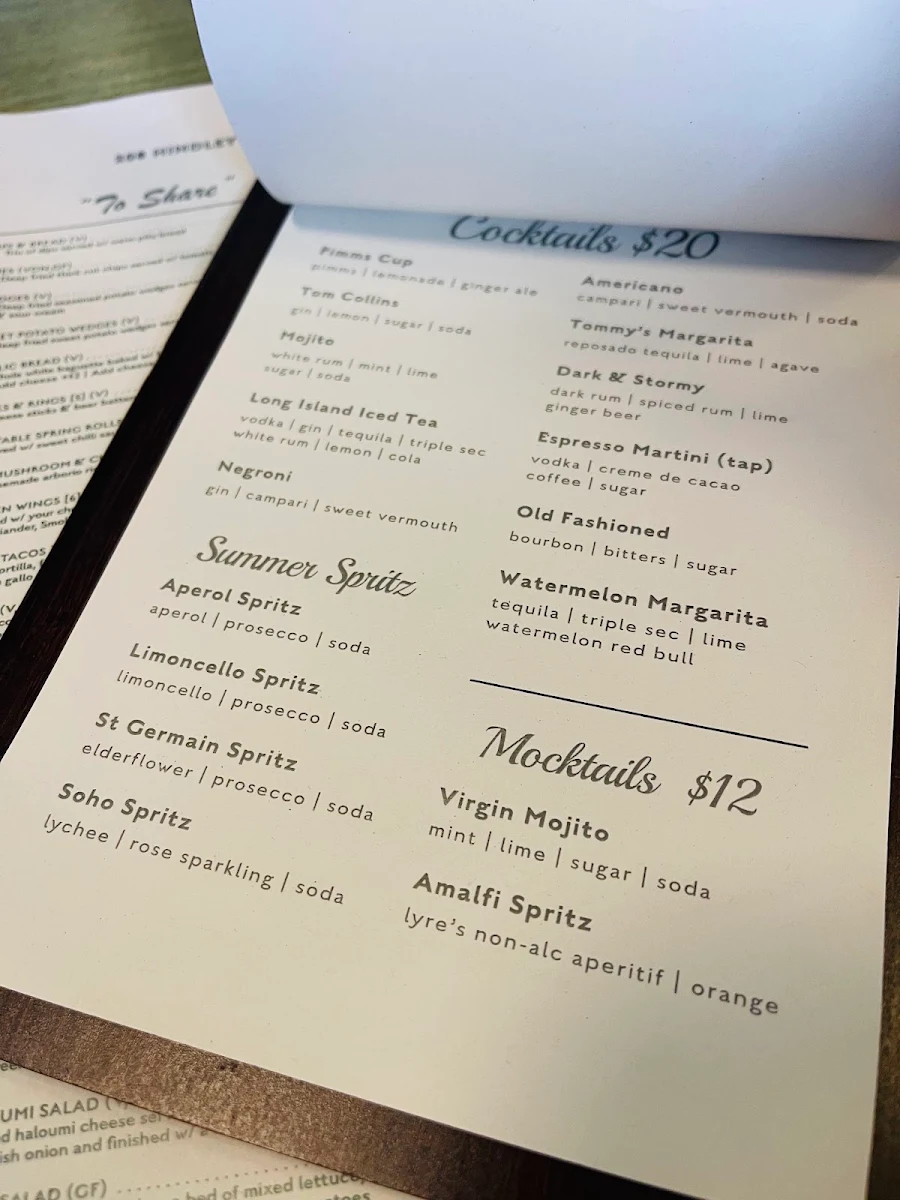 HINDLEY
"To Share"
POTATO WEDGES (V)
BREAD (V)
& RINGS (5) (V)
SPRING ROLLS
MUSHROOM &
WINGS [6]
TACOS
gallo
Cocktails $20
Pimms Cup
pimms | lemonade | ginger ale
Tom Collins
gin | lemon | sugar | soda
Mojito
white rum | mint | lime
sugar | soda
Long Island Iced Tea
vodka | gin | tequila | triple sec
white rum | lemon | cola
Negroni
gin | campari | sweet vermouth
Summer Spritz
Aperol Spritz
aperol | prosecco | soda
Limoncello Spritz
limoncello | prosecco | soda
St Germain Spritz
elderflower | prosecco | soda
Soho Spritz
lychee | rose sparkling | soda
Americano
campari | sweet vermouth | soda
Tommy's Margarita
reposado tequila | lime | agave
Dark & Stormy
dark rum | spiced rum | lime
ginger beer
Espresso Martini (tap)
vodka | creme de cacao
coffee | sugar
Old Fashioned
bourbon | bitters | sugar
Watermelon Margarita
tequila | triple sec | lime
watermelon red bull
Mocktails $12
Virgin Mojito
mint | lime | sugar | soda
Amalfi Spritz
lyre's non-alc aperitif | orange
UMI SALAD
d haloumi cheese
ish onion and finished w/
SALAD (GF)
bed of mixed lettuce,